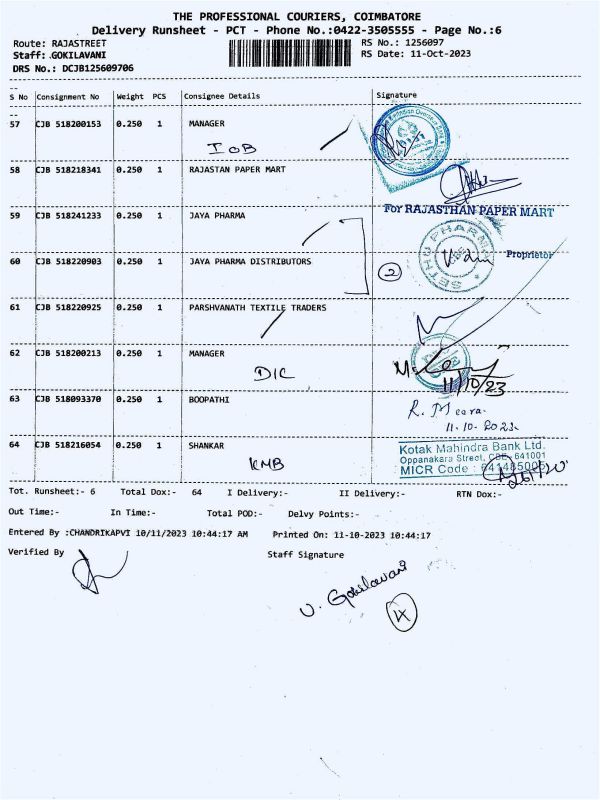 THE PROFESSIONAL COURIERS, COIMBATORE
Delivery Runsheet - PCT - Phone No.:0422-3505555 - Page No.:6
Route: RAJASTREET RS No.: 1256097
Staff: GOKILAVANI RS Date: 11-Oct-2023
DRS No.: DCJB125609706
S No Consignment No Weight PCS Consignee Details Signature
57 CJB 518200153 0.250 1 MANAGER
IOB
58 CJB 518218341 0.250 1 RAJASTAN PAPER MART
For RAJASTHAN PAPER MART
59 CJB 518241233 0.250 1 JAYA PHARMA
SETHU PHARMA
Proprietor
60 CJB 518220903 0.250 1 JAYA PHARMA DISTRIBUTORS
2
61 CJB 518220925 0.250 1 PARSHVANATH TEXTILE TRADERS
62 CJB 518200213 0.250 1 MANAGER
DIC
11/10/23
63 CJB 518093370 0.250 1 BOOPATHI
R. Meera.
11.10.2023.
64 CJB 518216054 0.250 1 SHANKAR
KMB
Kotak Mahindra Bank Ltd.
Oppanakara Street, CBE 641001
MICR Code : 641485005
Tot. Runsheet:- 6 Total Dox:- 64 I Delivery:- II Delivery:- RTN Dox:-
Out Time:- In Time:- Total POD:- Delvy Points:-
Entered By :CHANDRIKAPVI 10/11/2023 10:44:17 AM Printed On: 11-10-2023 10:44:17
Verified By Staff Signature
V. Gokilavani